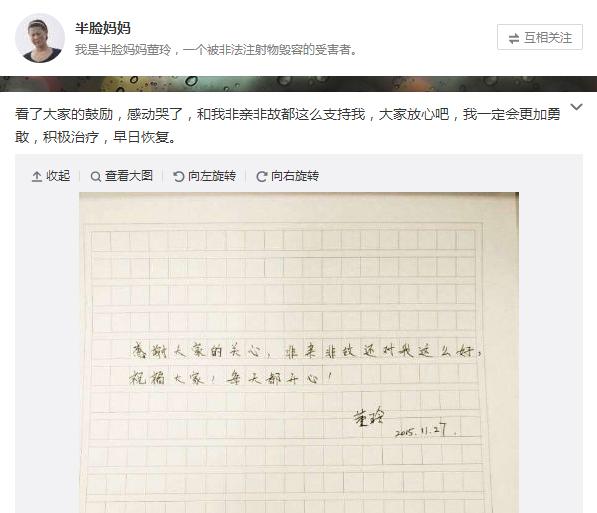 半脸妈妈
我是半脸妈妈董玲，一个被非法注射物毁容的受害者。
互相关注
看了大家的鼓励，感动哭了，和我非亲非故都这么支持我，大家放心吧，我一定会更加勇
敢，积极治疗，早日恢复。
收起 查看大图 向左旋转 向右旋转
感谢大家的关心，非亲非故还对我这么好，
祝福大家！每天都开心！
董玲
2015.11.27.